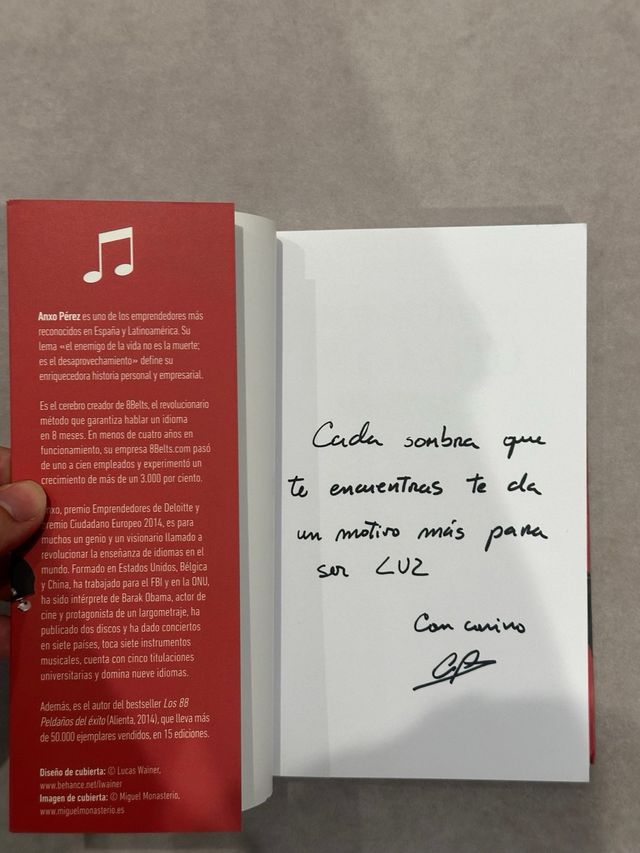 Anxo Pérez es uno de los emprendedores más
reconocidos en España y Latinoamérica. Su
lema «el enemigo de la vida no es la muerte;
es el desaprovechamiento» define su
enriquecedora historia personal y empresarial.
Es el cerebro creador de 8Belts, el revolucionario
método que garantiza hablar un idioma
en 8 meses. En menos de cuatro años en
funcionamiento, su empresa 8Belts.com pasó
de uno a cien empleados y experimentó un
crecimiento de más de un 3.000 por ciento.
Anxo, premio Emprendedores de Deloitte y
Premio Ciudadano Europeo 2014, es para
muchos un genio y un visionario llamado a
revolucionar la enseñanza de idiomas en el
mundo. Formado en Estados Unidos, Bélgica
y China, ha trabajado para el FBI y en la ONU,
ha sido intérprete de Barak Obama, actor de
cine y protagonista de un largometraje, ha
publicado dos discos y ha dado conciertos
en siete países, toca siete instrumentos
musicales, cuenta con cinco titulaciones
universitarias y domina nueve idiomas.
Además, es el autor del bestseller Los 88
Peldaños del éxito (Alienta, 2014), que lleva más
de 50.000 ejemplares vendidos, en 15 ediciones.
Diseño de cubierta: © Lucas Wainer,
www.behance.net/lwainer
Imagen de cubierta: © Miguel Monasterio,
www.miguelmonasterio.es
Cada sombra que
te encuentras te da
un motivo más para
ser LUZ
Con cariño